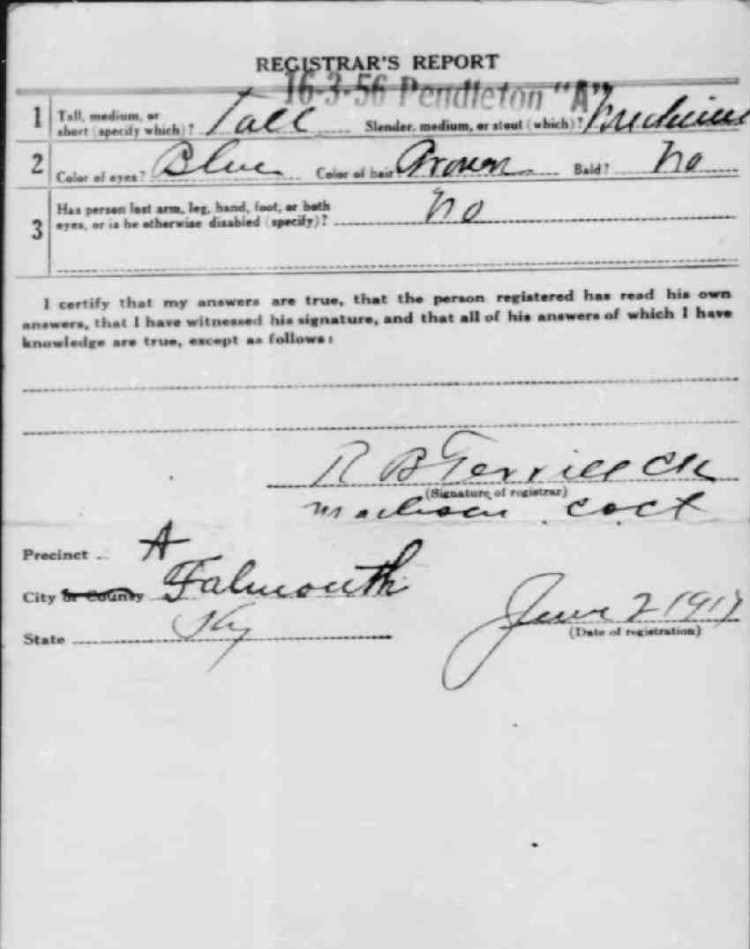 REGISTRAR'S REPORT
16-3-56 Pendleton "A"
1 Tall, medium, or short (specify which)? Tall Slender, medium, or stout (which)? Medium
2 Color of eyes? Blue Color of hair Brown Bald? No
3 Has person lost arm, leg, hand, foot, or both
eyes, or is he otherwise disabled (specify)? No
I certify that my answers are true, that the person registered has read his own
answers, that I have witnessed his signature, and that all of his answers of which I have
knowledge are true, except as follows:
R B Terrill Clk
(Signature of registrar)
Madison Co Ct
Precinct A
City or County Falmouth
State Ky
June 2 1917
(Date of registration)